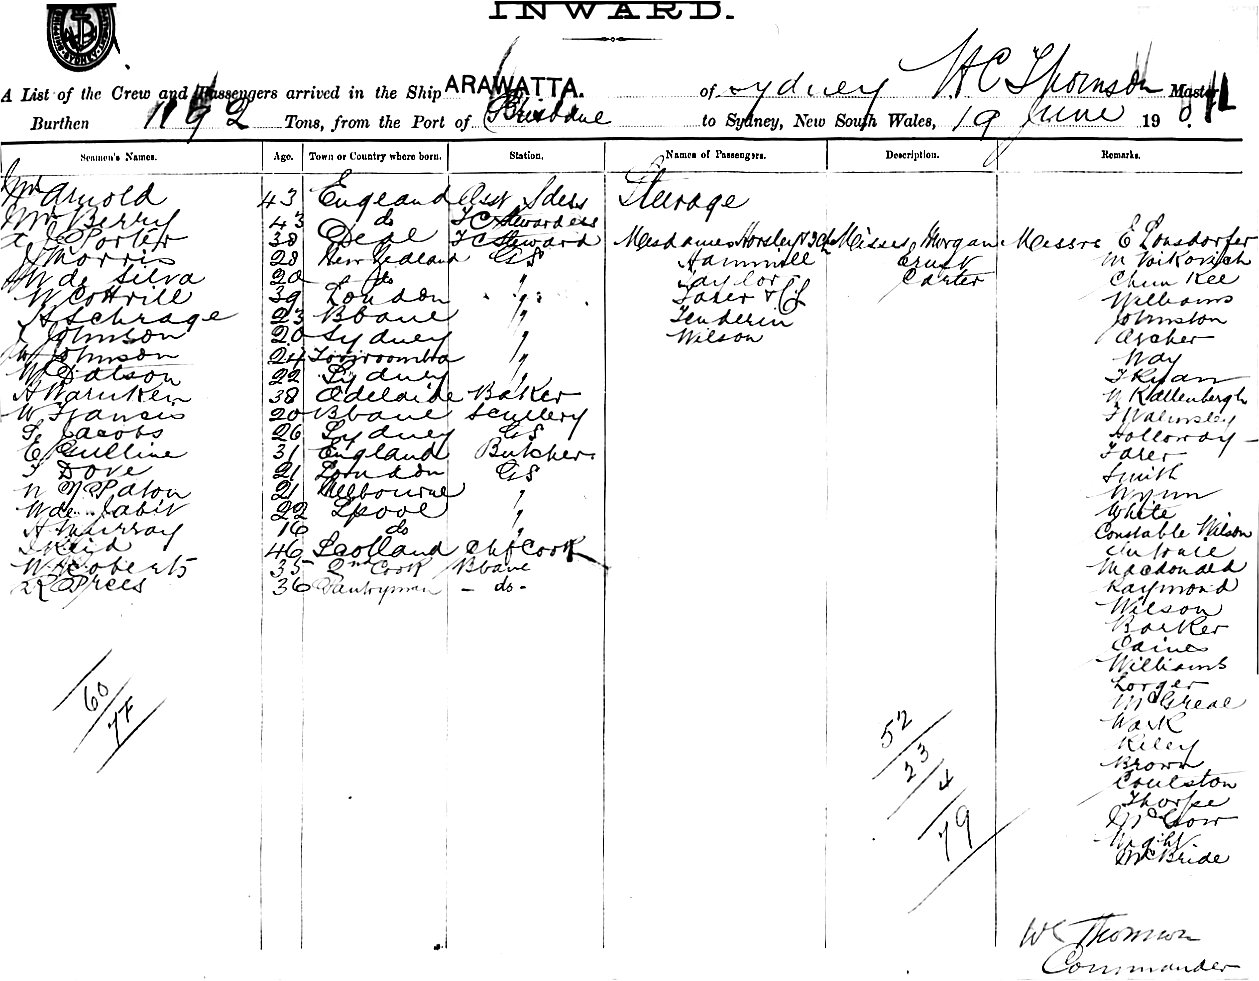 INWARD.
A List of the Crew and Passengers arrived in the Ship ARAWATTA. of Sydney W C Thomson Master
Burthen Tons, from the Port of Brisbane to Sydney, New South Wales, 19 June 19
Seamen's Names. Age. Town or Country where born. Station. Names of Passengers. Description. Remarks.
Arnold 43 England Steerage
Mrs Berry 43 do F C Stewardess
Porter 38 Deal F C Steward Mesdames Horsley Misses Morgan Messrs E Lonsdorfer
J Morris 28 New Zealand GS Hammill M Voikovich
W de Silva 20 do " Taylor Carter Chun Kee
W Cottrill 39 London " Williams
A Schrage 23 Bbane " Tenderin Johnston
Johnson 20 Sydney " Wilson Archer
Johnson 24 Toowoomba " Way
W Datson 22 Sydney " T Ryan
A Warnken 38 Adelaide Baker W Kallenbergh
W Francis 20 Bbane Scullery T Walmsley
S Jacobs 26 Sydney GS Holloway
E Gulline 31 England Butcher
T Dove 21 London GS Smith
Paton 21 Melbourne " Wynn
22 Lpool " White
A Murray 16 do " Constable Wilson
Reid 46 Scotland Chf Cook
W Roberts 35 2nd Cook Bbane Macdonald
Prees 36 Pantryman - do - Raymond
Wilson
Barker
Caines
Williams
Lorger
McGreal
Wark
Riley
Brown
Coulston
Thorpe
McBride
60
77
52
23
4
79
W C Thomson
Commander